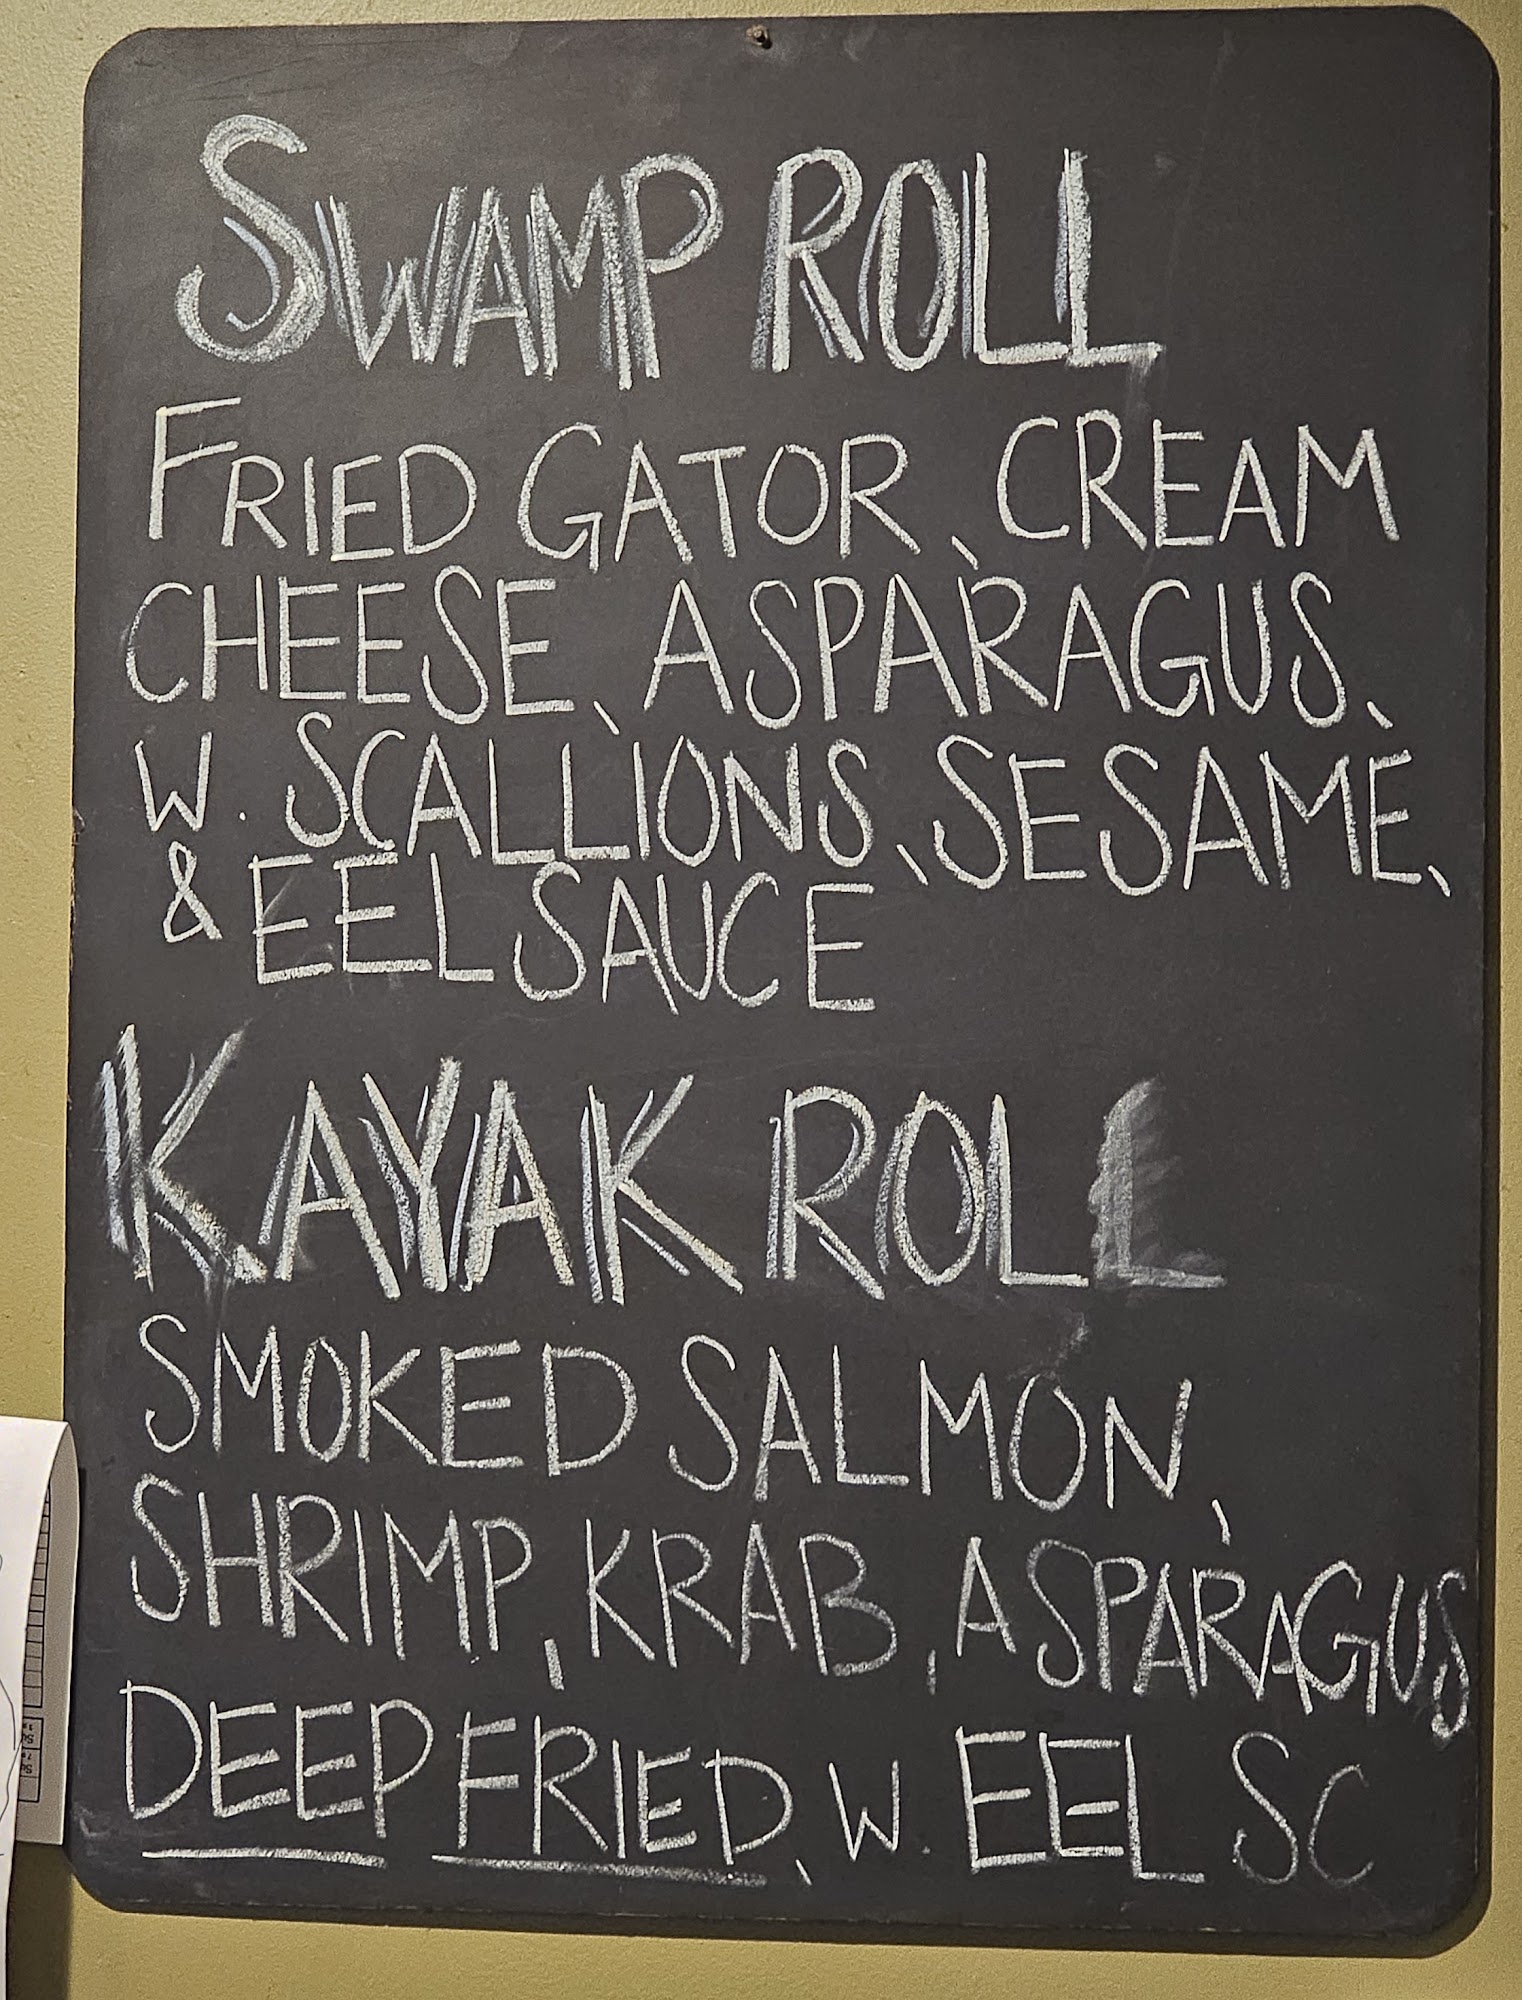 SWAMP ROLL
FRIED GATOR, CREAM
CHEESE, ASPARAGUS,
W. SCALLIONS, SESAME,
& EEL SAUCE
KAYAK ROLL
SMOKED SALMON,
SHRIMP, KRAB, ASPARAGUS
DEEP FRIED, W. EEL SC